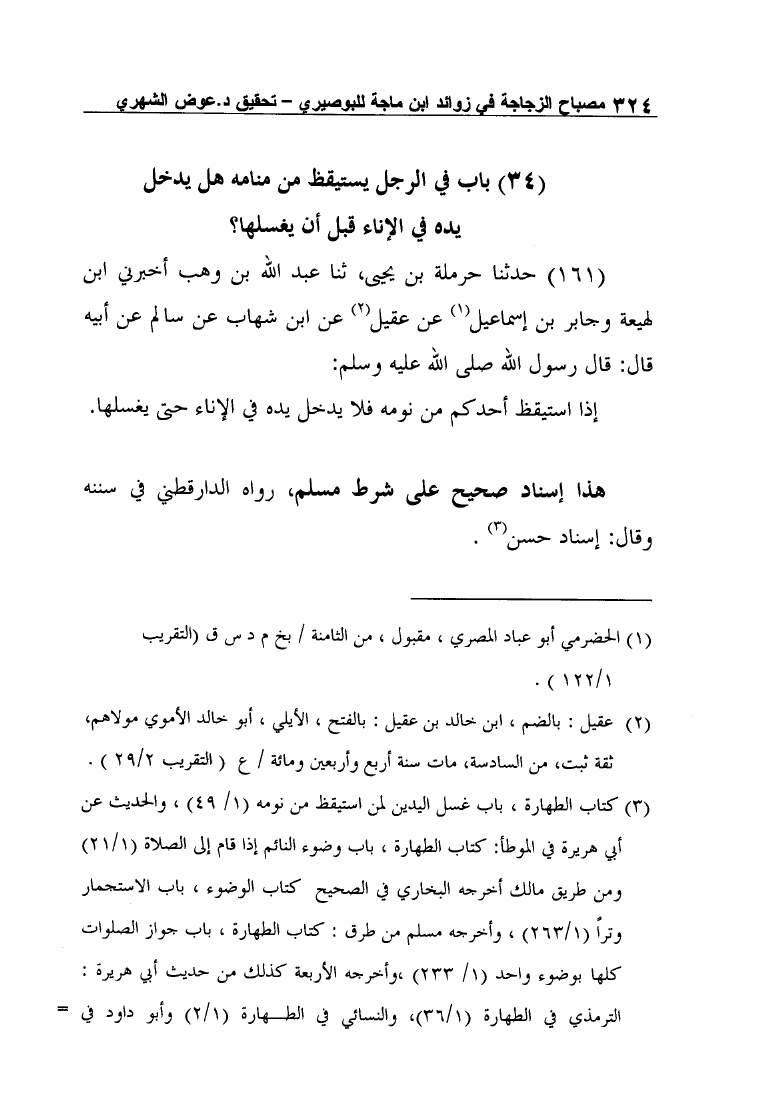 ٣٢٤ مصباح الزجاجة في زوائد ابن ماجة للبوصيري – تحقيق د.عوض الشهري
(٣٤) باب في الرجل يستيقظ من منامه هل يدخل
يده في الإناء قبل أن يغسلها؟
(١٦١) حدثنا حرملة بن يحيى، ثنا عبد الله بن وهب أخبرني ابن
لهيعة وجابر بن إسماعيل(١) عن عقيل(٢) عن ابن شهاب عن سالم عن أبيه
قال: قال رسول الله صلى الله عليه وسلم:
إذا استيقظ أحدكم من نومه فلا يدخل يده في الإناء حتى يغسلها.
هذا إسناد صحيح على شرط مسلم، رواه الدارقطني في سننه
وقال: إسناد حسن(٣) .
(١) الحضرمي أبو عباد المصري ، مقبول ، من الثامنة / بخ م د س ق (التقريب
١٢٢/١ ) .
(٢) عقيل : بالضم ، ابن خالد بن عقيل : بالفتح ، الأيلي ، أبو خالد الأموي مولاهم،
ثقة ثبت، من السادسة، مات سنة أربع وأربعين ومائة / ع ( التقريب ٢٩/٢ ) .
(٣) كتاب الطهارة ، باب غسل اليدين لمن استيقظ من نومه (١/ ٤٩) ، والحديث عن
أبي هريرة في الموطأ: كتاب الطهارة ، باب وضوء النائم إذا قام إلى الصلاة (٢١/١)
ومن طريق مالك أخرجه البخاري في الصحيح كتاب الوضوء ، باب الاستجمار
وتراً (٢٦٣/١) ، وأخرجه مسلم من طرق : كتاب الطهارة ، باب جواز الصلوات
كلها بوضوء واحد (١/ ٢٣٣) ،وأخرجه الأربعة كذلك من حديث أبي هريرة :
الترمذي في الطهارة (٣٦/١)، والنسائي في الطـهارة (٢/١) وأبو داود في =